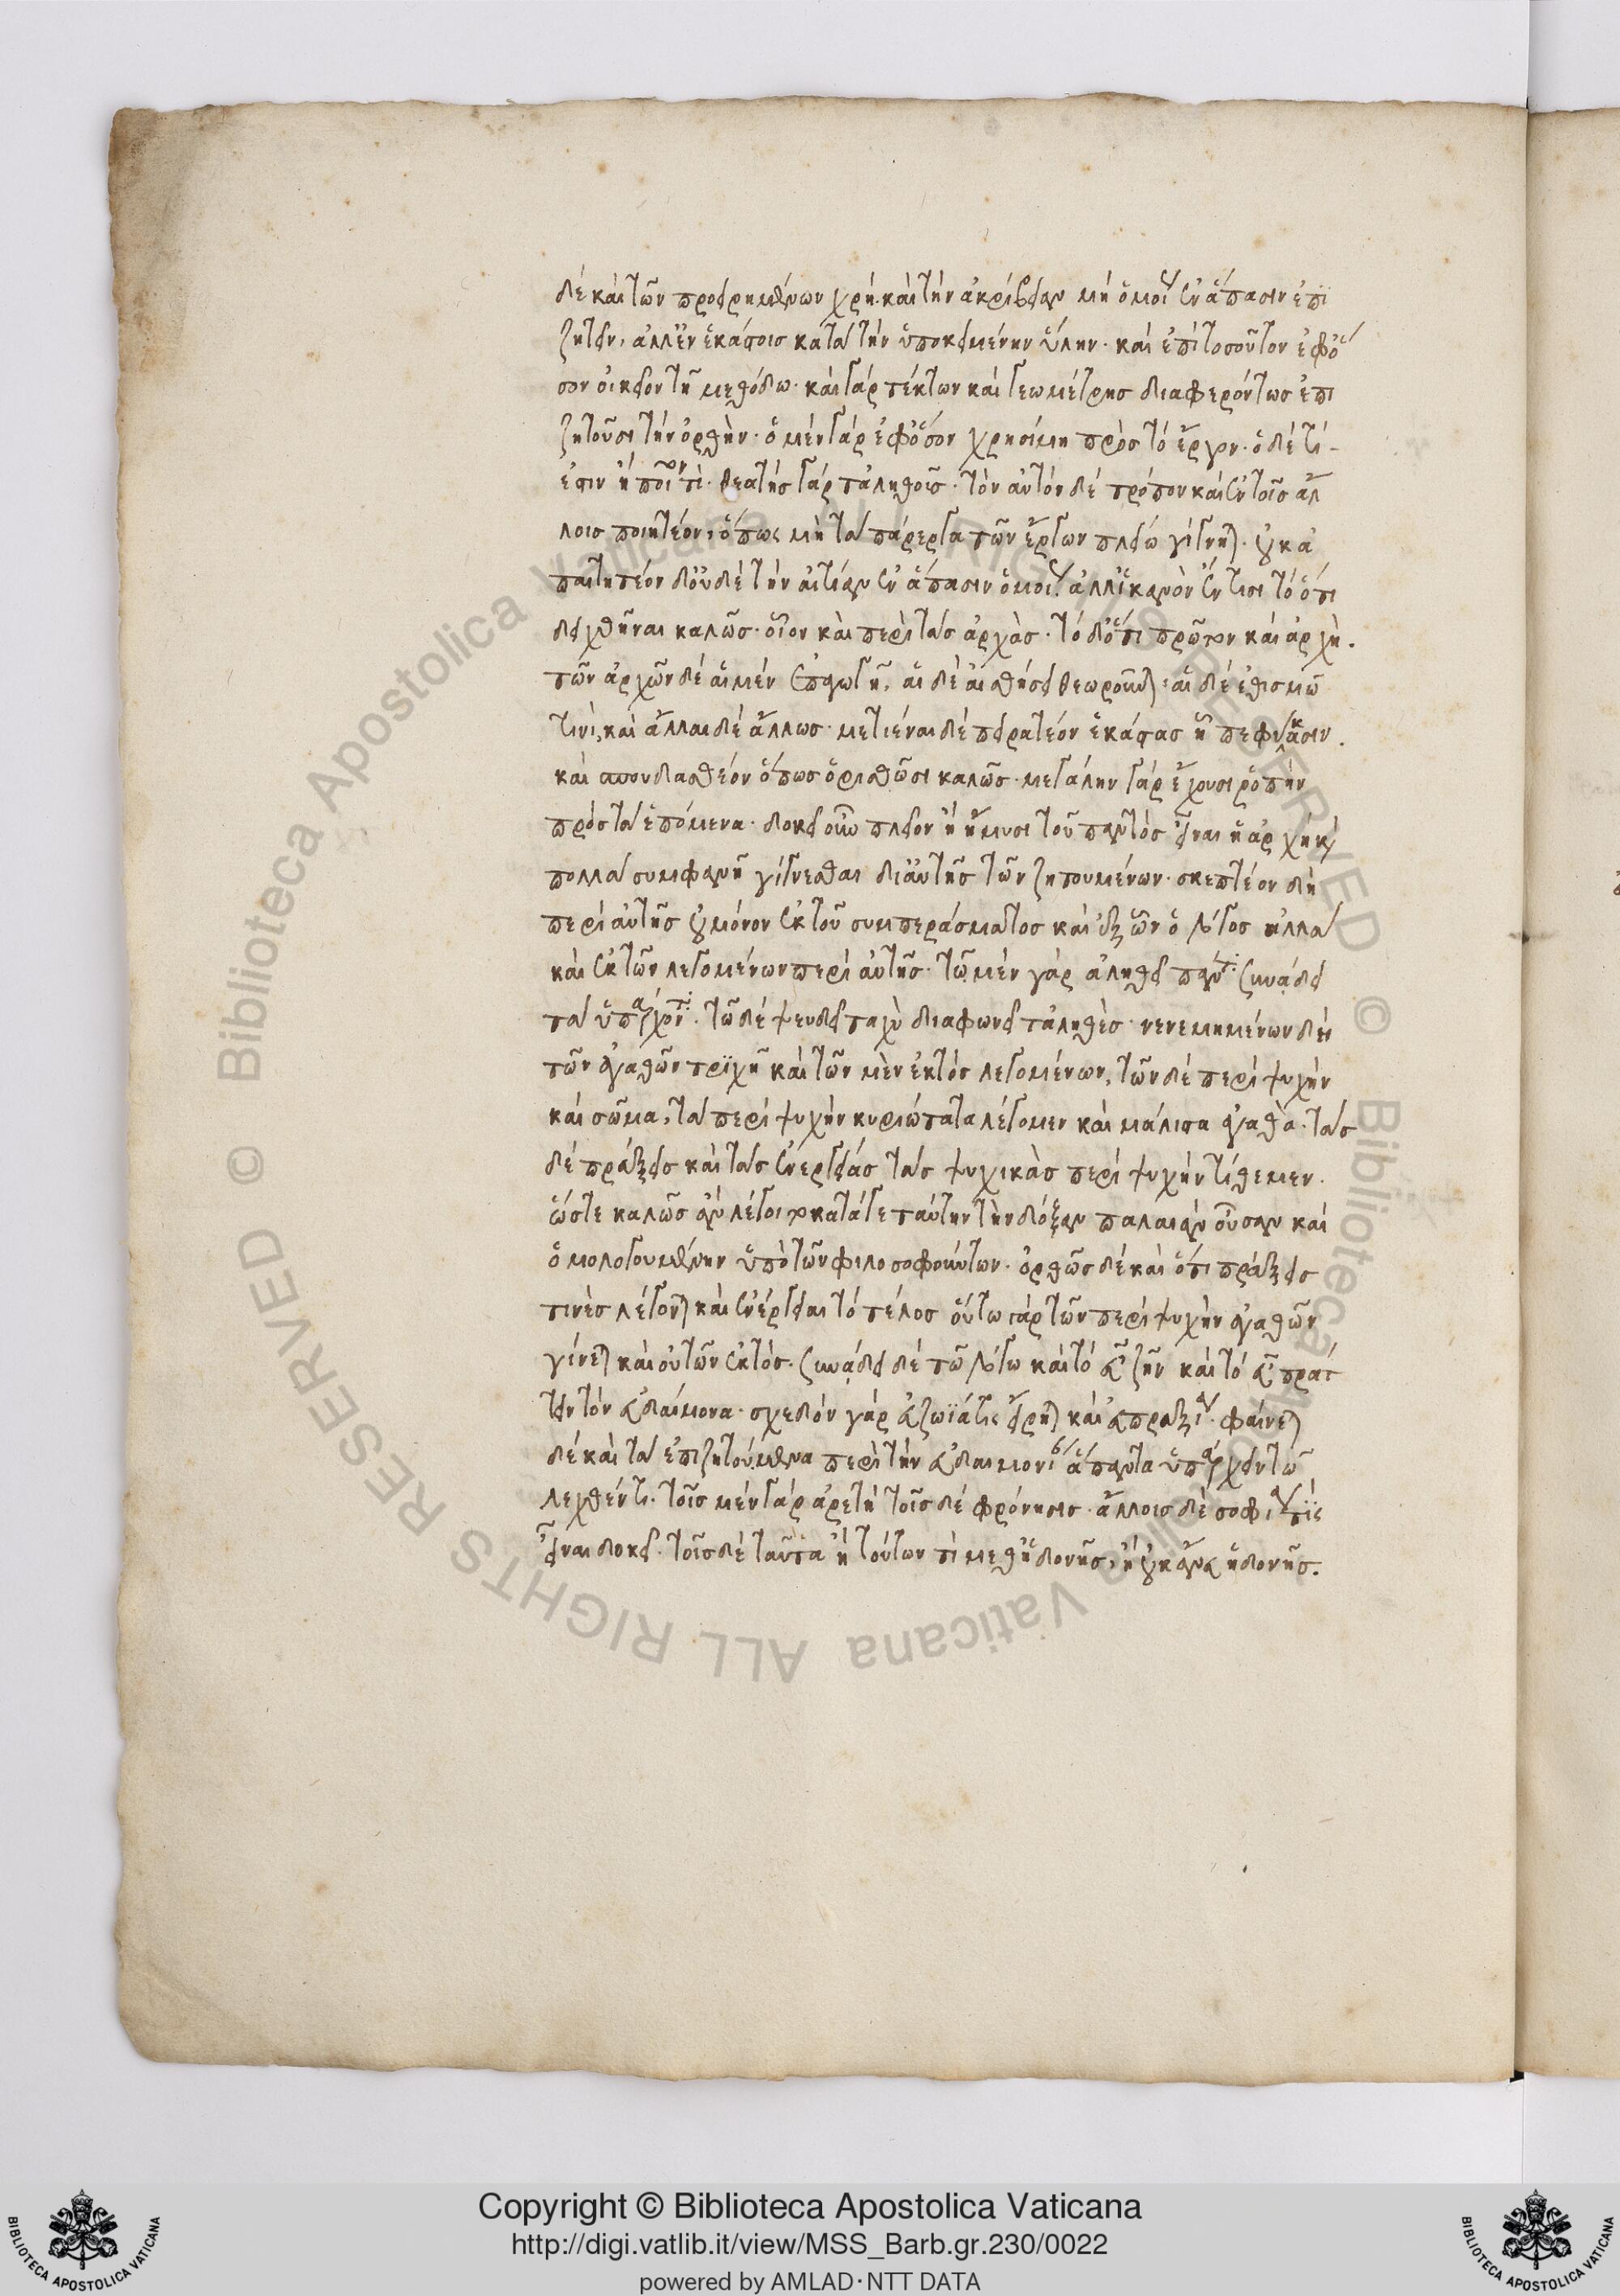 δὲ καὶ τῶν προειρημένων χρὴ. καὶ τὴν ἀκρίβειαν μὴ ὁμοίως ἐν ἅπασιν ἐπι
ζητεῖν, ἀλλ' ἐν ἑκάστοις κατὰ τὴν ὑποκειμένην ὕλην. καὶ ἐπὶ τοσοῦτον ἐφ' ὅ
σον οἰκεῖον τῇ μεθόδω. καὶ γὰρ τέκτων καὶ γεωμέτρης διαφερόντως ἐπι
ζητοῦσι τὴν ὀρθὴν. ὁ μὲν γὰρ ἐφ' ὅσον χρησίμη πρὸς τὸ ἔργον. ὁ δὲ τί
ἐστιν ἢ ποῖόν τι. θεατὴς γὰρ τἀληθοῦς. τὸν αὐτὸν δὲ τρόπον καὶ ἐν τοῖς ἄλ
λοις ποιητέον, ὅπως μὴ τὰ πάρεργα τῶν ἔργων πλείω γίγνηται. οὐκ ἀ
παιτητέον δ' οὐδὲ τὴν αἰτίαν ἐν ἅπασιν ὁμοίως. ἀλλ' ἱκανὸν ἔν τισι τὸ ὅτι
δειχθῆναι καλῶς. οἷον καὶ περὶ τὰς ἀρχὰς. τὸ δ' ὅτι πρῶτον καὶ ἀρχὴ.
τῶν ἀρχῶν δὲ αἱ μὲν ἐπαγωγῆ, αἱ δὲ αἰσθήσει θεωροῦνται, αἱ δὲ ἐθισμῶ
τινὶ, καὶ ἄλλαι δὲ ἄλλως. μετιέναι δὲ πειρατέον ἑκάστας ἧ πεφύκασιν.
καὶ σπουδαστέον ὅπως ὁρισθῶσι καλῶς. μεγάλην γὰρ ἔχουσι ῥοπὴν
πρὸς τὰ ἑπόμενα. δοκεῖ οὖν πλεῖον ἢ ἥμυσι τοῦ παντὸς εἶναι ἡ ἀρχὴ κὶ
πολλὰ συμφανῆ γίγνεσθαι δι' αὐτῆς τῶν ζητουμένων. σκεπτέον δὴ
περὶ αὐτῆς οὐ μόνον ἐκ τοῦ συμπεράσματος καὶ ἐξ ὧν ὁ λόγος ἀλλὰ
καὶ ἐκ τῶν λεγομένων περὶ αὐτῆς. τῶ μὲν γὰρ ἀληθεῖ πάντα συνάδει
τὰ ὑπάρχοντα. τῶ δὲ ψευδεῖ ταχὺ διαφωνεῖ τἀληθὲς. νενεμημένων δὴ
τῶν ἀγαθῶν τριχῆ καὶ τῶν μὲν ἐκτὸς λεγομένων, τῶν δὲ περὶ ψυχὴν
καὶ σῶμα, τὰ περὶ ψυχὴν κυριώτατα λέγομεν καὶ μάλιστα ἀγαθὰ. τὰς
δὲ πράξεις καὶ τὰς ἐνεργείας τὰς ψυχικὰς περὶ ψυχὴν τίθεμεν.
ὥστε καλῶς ἂν λέγοιτο κατά γε ταύτην τὴν δόξαν παλαιὰν οὖσαν καὶ
ὁμολογουμένην ὑπὸ τῶν φιλοσοφούντων. ὀρθῶς δὲ καὶ ὅτι πράξεις
τινὲς λέγονται καὶ ἐνέργειαι τὸ τέλος οὕτω γὰρ τῶν περὶ ψυχὴν ἀγαθῶν
γίνεται καὶ οὐ τῶν ἐκτὸς. συνάδει δὲ τῶ λόγω καὶ τὸ εὖ ζῆν καὶ τὸ εὖ πράτ
τειν τὸν εὐδαίμονα. σχεδὸν γὰρ εὐζωΐα τις εἴρηται καὶ εὐπραξία. φαίνεται
δὲ καὶ τὰ ἐπιζητούμενα περὶ τὴν εὐδαιμονίαν ἅπαντα ὑπάρχειν τῶ
λεχθέντι. τοῖς μὲν γὰρ ἀρετὴ τοῖς δὲ φρόνησις. ἄλλοις δὲ σοφία τὶς
εἶναι δοκεῖ. τοῖς δὲ ταῦτα ἢ τούτων τὶ μεθ' ἡδονῆς, ἢ οὐκ ἄνευ ἡδονῆς.
Copyright © Biblioteca Apostolica Vaticana
http://digi.vatlib.it/view/MSS_Barb.gr.230/0022
powered by AMLAD·NTT DATA
BIBLIOTECA APOSTOLICA VATICANA
BIBLIOTECA APOSTOLICA VATICANA
© Biblioteca Apostolica Vaticana ALL RIGHTS RESERVED
© Biblioteca Apostolica Vaticana ALL RIGHTS RESERVED